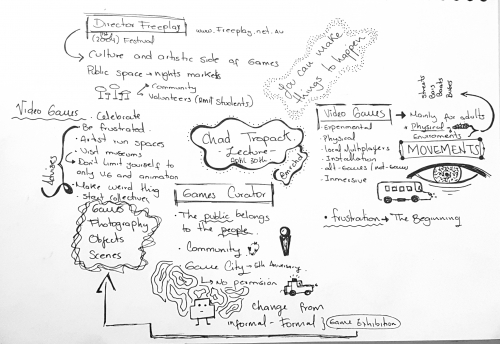 Director Freeplay
www.Freeplay.net.au
(2004) Festival
Culture and artistic side of Games
Public space → nights markets
Community
Volunteers (RMIT Students)
You can make
things to happen
Video Games
Celebrate
Be frustrated
Artist run spaces
Visit museums
Don't limit yourself to
only VG and animation
Make weird thing
Start collectives
Advises
Games
Photography
Objects
Scenes
Chad Toprack
- Lecture -
April 30th
Games Curator
The public belongs
to the people
Community
Game City → 5th Anniversary
↳ No permision
change from
informal - Formal
Game Exhibition
Video Games
Experimental
Physical
local Multiplayers
Installation
Inmersive
→ Mainly for adults
→ Physical
Environments
Streets
Bars
Boats
MOVEMENTS
frustration → The Beginning